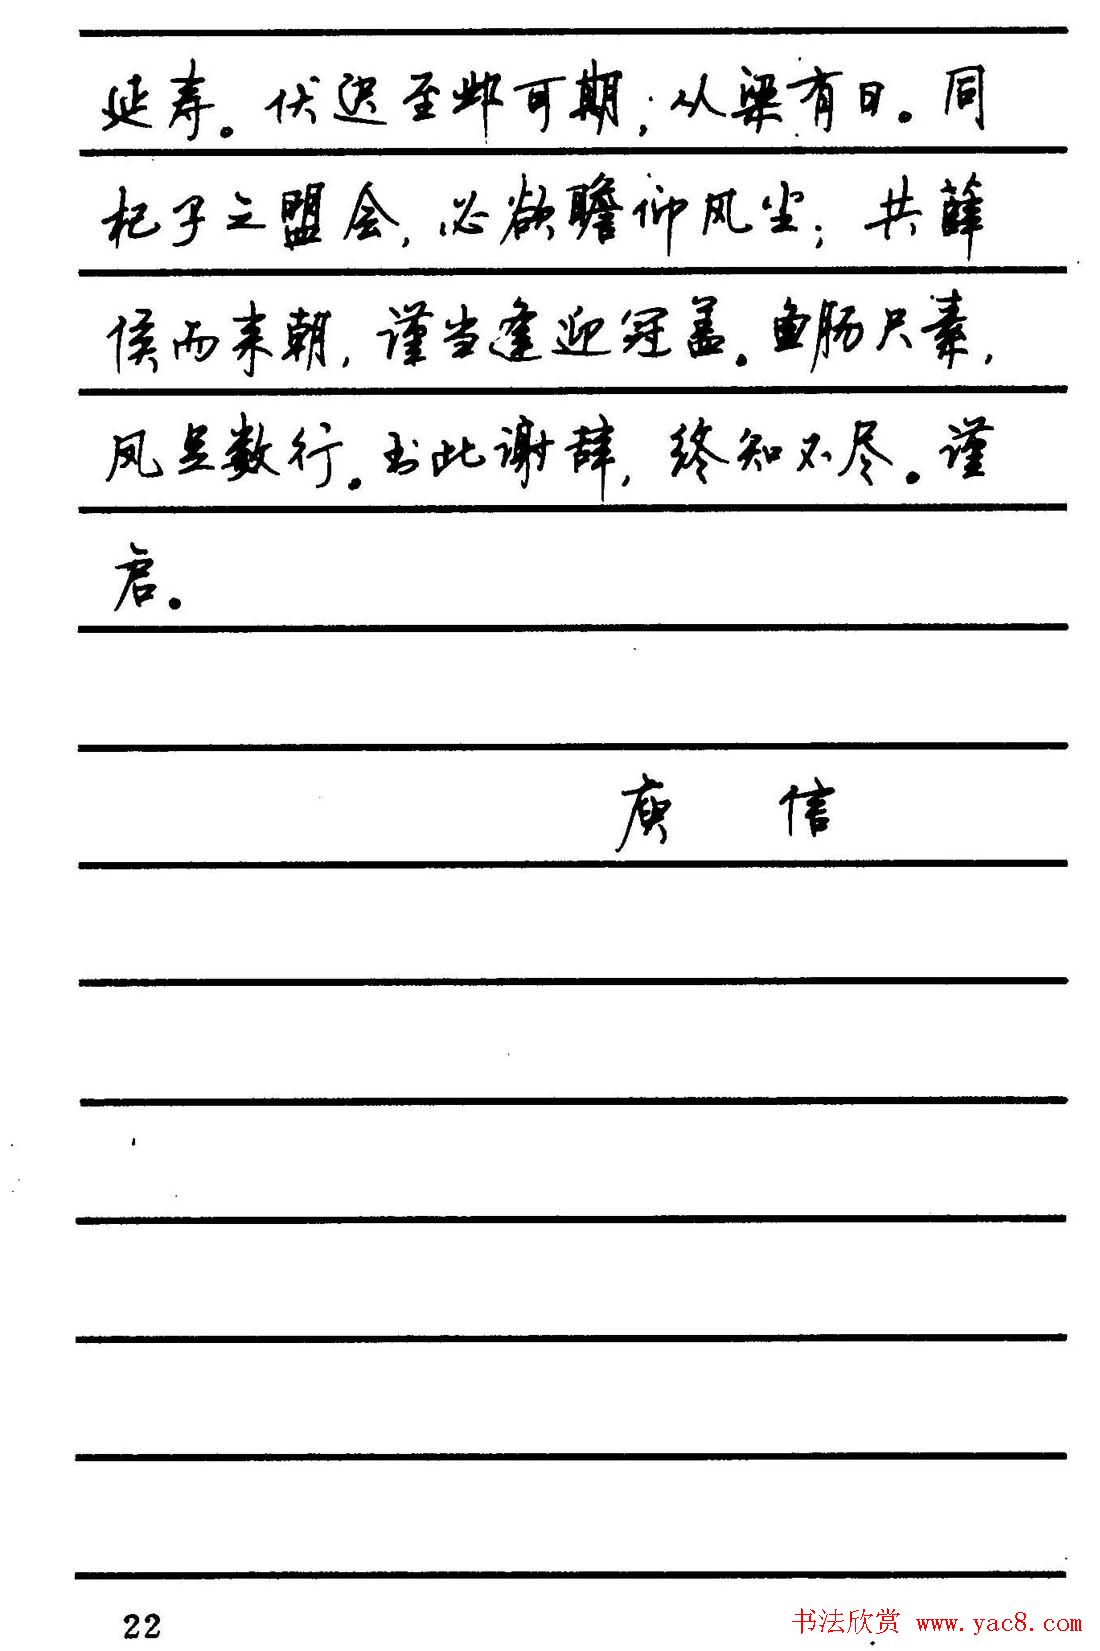 延寿。伏迟至邺可期；从梁有日。同
杞子之盟会，必欲瞻仰风尘；共薛
侯而来朝，谨当逢迎冠盖。鱼肠尺素，
凤足数行。书此谢辞，终知不尽。谨
启。
庾 信
22
书法欣赏 www.yac8.com